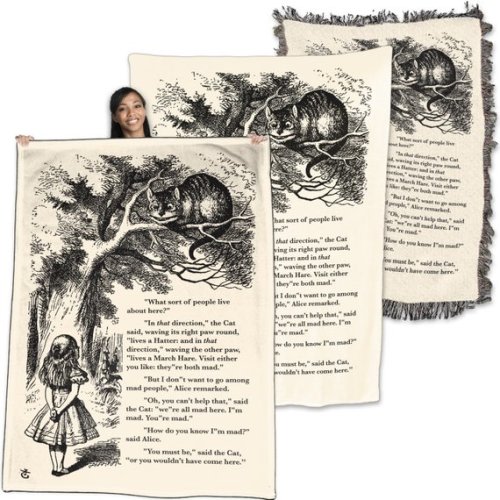 "What sort of people live
about here?"
"In that direction," the Cat
said, waving its right paw round,
"lives a Hatter: and in that
direction," waving the other paw,
"lives a March Hare. Visit either
you like: they're both mad."
"But I don't want to go among
mad people," Alice remarked.
"Oh, you can't help that," said
the Cat: "we're all mad here. I"m
mad. You"re mad."
"How do you know I"m mad?"
said Alice.
"You must be," said the Cat,
"or you wouldn't have come here."
sort of people live
direction," the Cat
its right paw round,
Hatter: and in that
waving the other paw,
March Hare. Visit either
they're both mad."
I don't want to go among
Alice remarked.
you can't help that," said
"we're all mad here. I"m
mad."
do you know I"m mad?"
must be," said the Cat,
wouldn't have come here."
"What sort of people live
here?"
"In that direction," the Cat
waving its right paw round,
a Hatter: and in that
waving the other paw,
a March Hare. Visit either
like: they're both mad."
"But I don't want to go among
people," Alice remarked.
"Oh, you can't help that," said
"we're all mad here. I"m
You"re mad."
"How do you know I"m mad?"
must be," said the Cat,
wouldn't have come here."